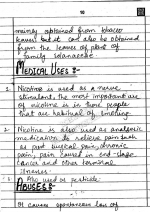 mainly obtained from tobacco
leaves but it can also be obtained
from the leaves of plant of
family solanaceae.
MEDICAL USES :-
1. Nicotine is used as a nerve
stimulant. The most important use
of nicotine is in those people
that are habitual of smoking.
2. Nicotine is also used as analgesic
medication to relieve pain such
as post surgical pain, chronic
pain, pain caused in end-stage
cancer and other terminal
illnesses.
Also used as pesticide.
ABUSES :-
It causes spontaneous loss of